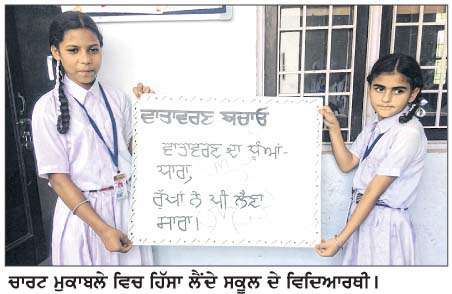 ਵਾਤਾਵਰਣ ਬਚਾਓ
ਵਾਤਾਵਰਣ ਦਾ ਧੂੰਆਂ-
ਧਾਰਾ,
ਰੁੱਖਾਂ ਨੇ ਪੀ ਲੈਣਾ
ਸਾਰਾ।
ਚਾਰਟ ਮੁਕਾਬਲੇ ਵਿਚ ਹਿੱਸਾ ਲੈਂਦੇ ਸਕੂਲ ਦੇ ਵਿਦਿਆਰਥੀ।